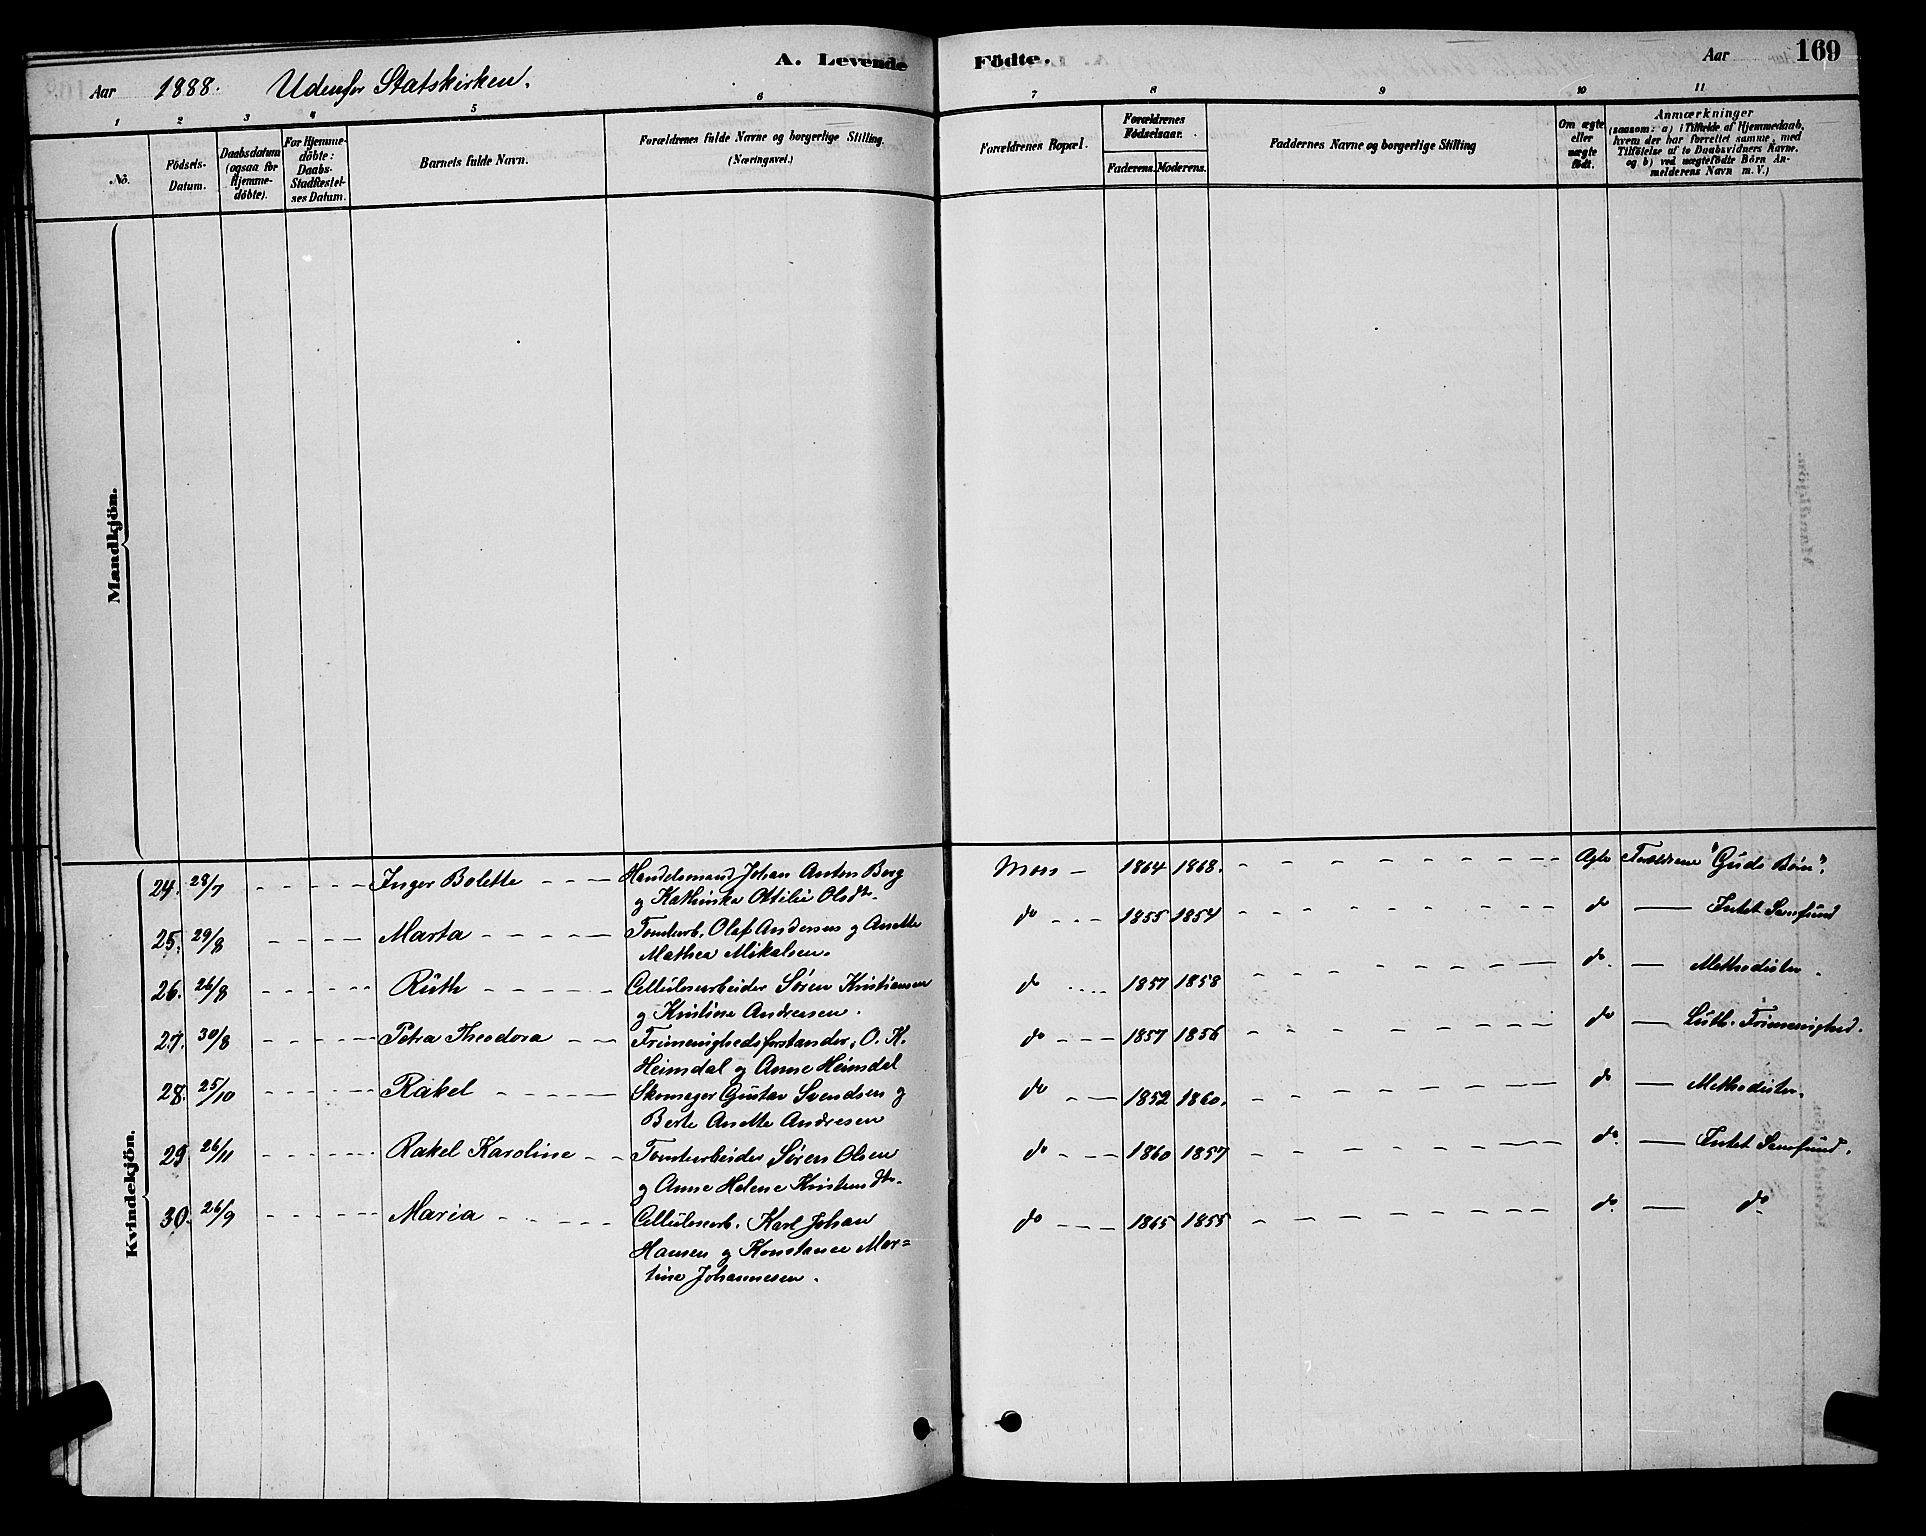 A. Levende Födte.
Aar 1888. Udenfor Statskirken.
Aar 169
1 2 3 4 5 6 7 8 9 10 11
No.
Födsels-Datum.
Daabsdatum (ogsaa for Hjemme-döbte).
For Hjemme-döbte: Daabs-Stadfæstel-ses Datum.
Barnets fulde Navn.
Forældrenes fulde Navne og borgerlige Stilling.
(Næringsvei.)
Forældrenes Bopæl.
Forældrenes Födselsaar.
Faderens. Moderens.
Faddernes Navne og borgerlige Stilling
Om ægte eller uægte födt.
Anmærkninger
(saasom: a) i Tilfælde af Hjemmedaab,
hvem der har forrettet samme, med
Tilföielse af to Daabsvidners Navne,
og b) ved uægtefödte Börn An-
melderens Navn m. V.)
Mandkjön.
Kvindekjön.
24. 28/7 Inger Bolette Handelsmand Johan Anton Berg Moss 1864 1868. Ægte Forældrene "Guds Børn".
og Kathinka Ottilie Olsdtr.
25. 29/8 Marta Tomtearb. Olaf Andersen og Anette do 1855 1854 do Intet Samfund
Mathea Mikalsen.
26. 26/8 Ruth Cellulosearbeider Søren Kristiansen do 1857 1858 do. Methodister.
og Kristine Andreasen.
27. 30/8 Petra Theodora Frimenighedsforstander, O. K. do 1857 1856 do Luth. Frimenighed.
Heimdal og Anne Heimdal
28. 25/10 Rakel Skomager Gustav Svendsen og do 1852 1860. do Methodister.
Berte Anette Andresen
29 26/11 Rakel Karoline Tomtearbeider Søren Olsen do 1860 1857 do. Intet Samfund.
og Anne Helene Kristensdtr.
30. 26/9 Maria Cellulosearb. Karl Johan do 1865 1855 do. do
Hansen og Konstance Mar=
tine Johannesen.